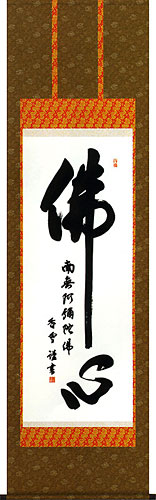 佛心
南無阿彌陀佛
香雲謹書